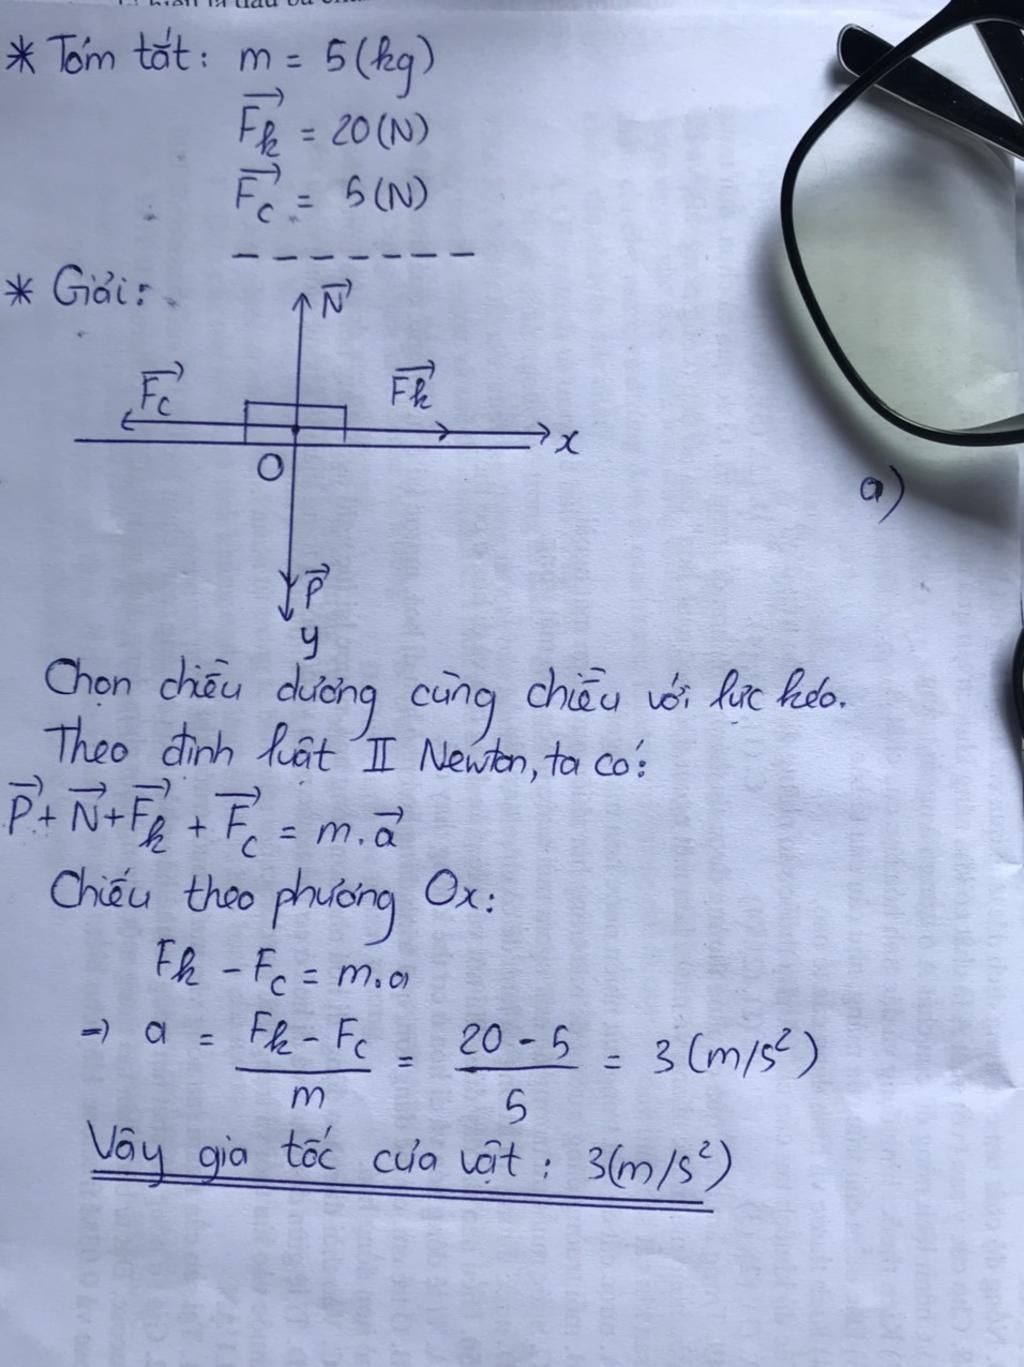 * Tóm tắt: m = 5 (kg)
F⃗k = 20 (N)
F⃗c = 5 (N)
-------
* Giải:
N⃗
F⃗c
F⃗k
x
O
a)
P⃗
y
Chọn chiều dương cùng chiều với lực kéo.
Theo định luật II Newton, ta có:
P⃗ + N⃗ + F⃗k + F⃗c = m.a⃗
Chiếu theo phương Ox:
Fk - Fc = m.a
=> a = (Fk - Fc)/m = (20 - 5)/5 = 3 (m/s²)
Vậy gia tốc của vật: 3(m/s²)